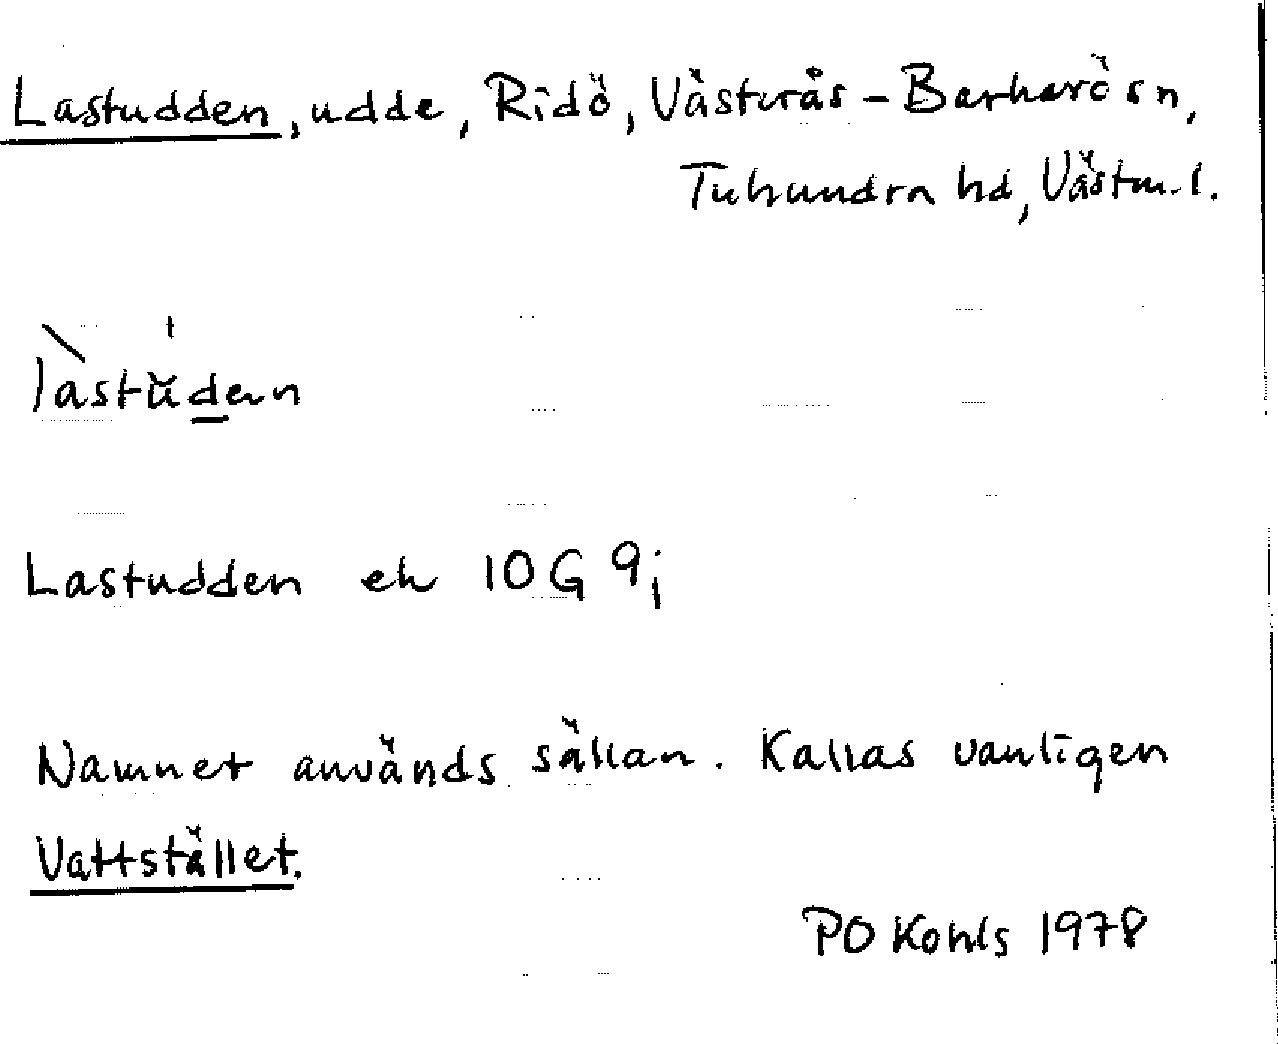 Lastudden, udde, Ridö, Västerås-Barkarö sn,
Tuhundra hd, Västm. l.
làstŭden
Lastudden ek 10G 9j
Namnet används sällan. Kallas vanligen
Vattstället.
PO Kohls 1978